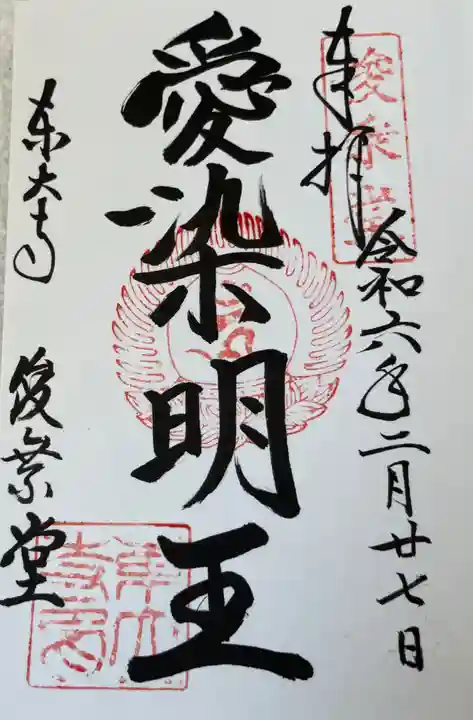 奉拝
俊乗堂
令和六年二月廿七日
愛染明王
東大寺
俊乗堂